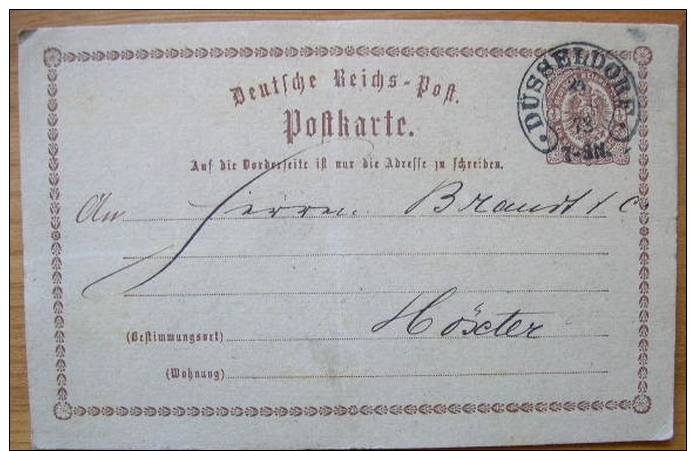 Deutsche Reichs-Post.
Postkarte.
DÜSSELDORF
7-8N.
Auf die Vorderseite ist nur die Adresse zu schreiben.
An Herrn Brandt & C
Höxter
(Bestimmungsort)
(Wohnung)